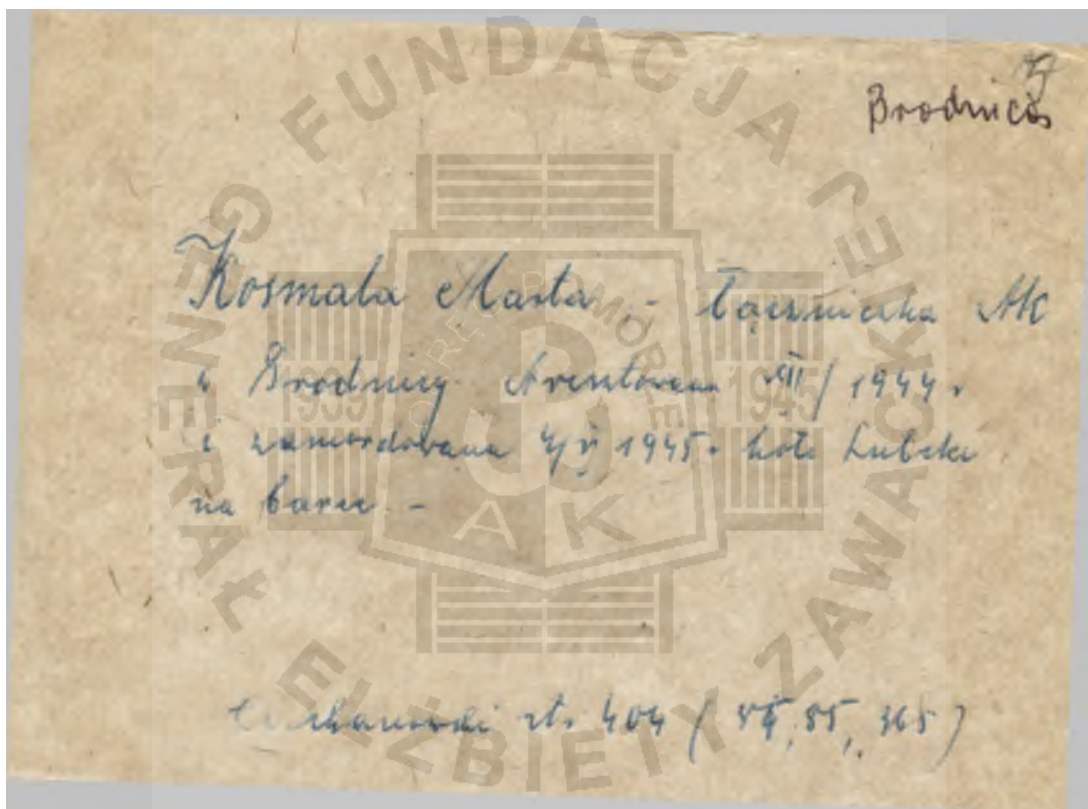 17
Brodnica
Kosmala Marta - łączniczka AK
w Brodnicy. Aresztowana XII/1944 r
i zamordowana 4/V 1945 r koło Lubeki
na barce -
Ciechanowski st. 404 ( 54, 55, 365 )
FUNDACJA GENERAŁ ELŻBIETY ZAWACKIEJ
OKRĘG POMORZE
1939 1945
AK